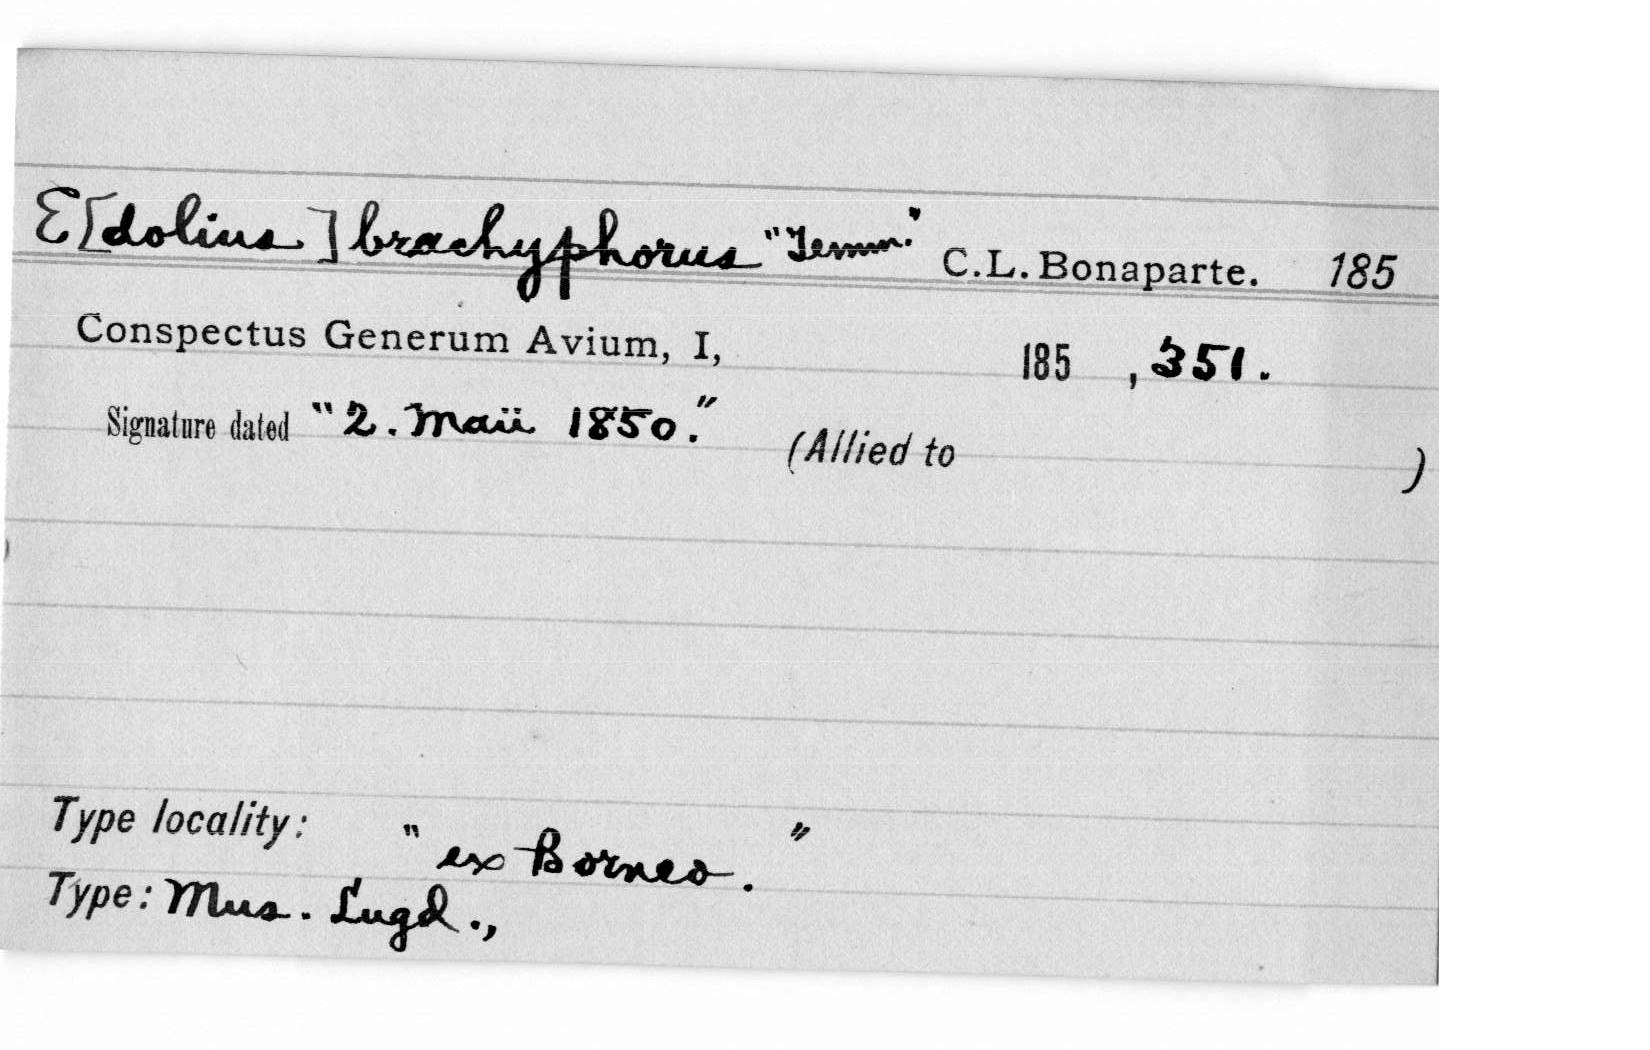 E[dolius] brachyphorus "Temm." C.L. Bonaparte. 185
Conspectus Generum Avium, I, 185 , 351.
Signature dated "2. Maii 1850." (Allied to )
Type locality: "ex Borneo."
Type: Mus. Lugd.,